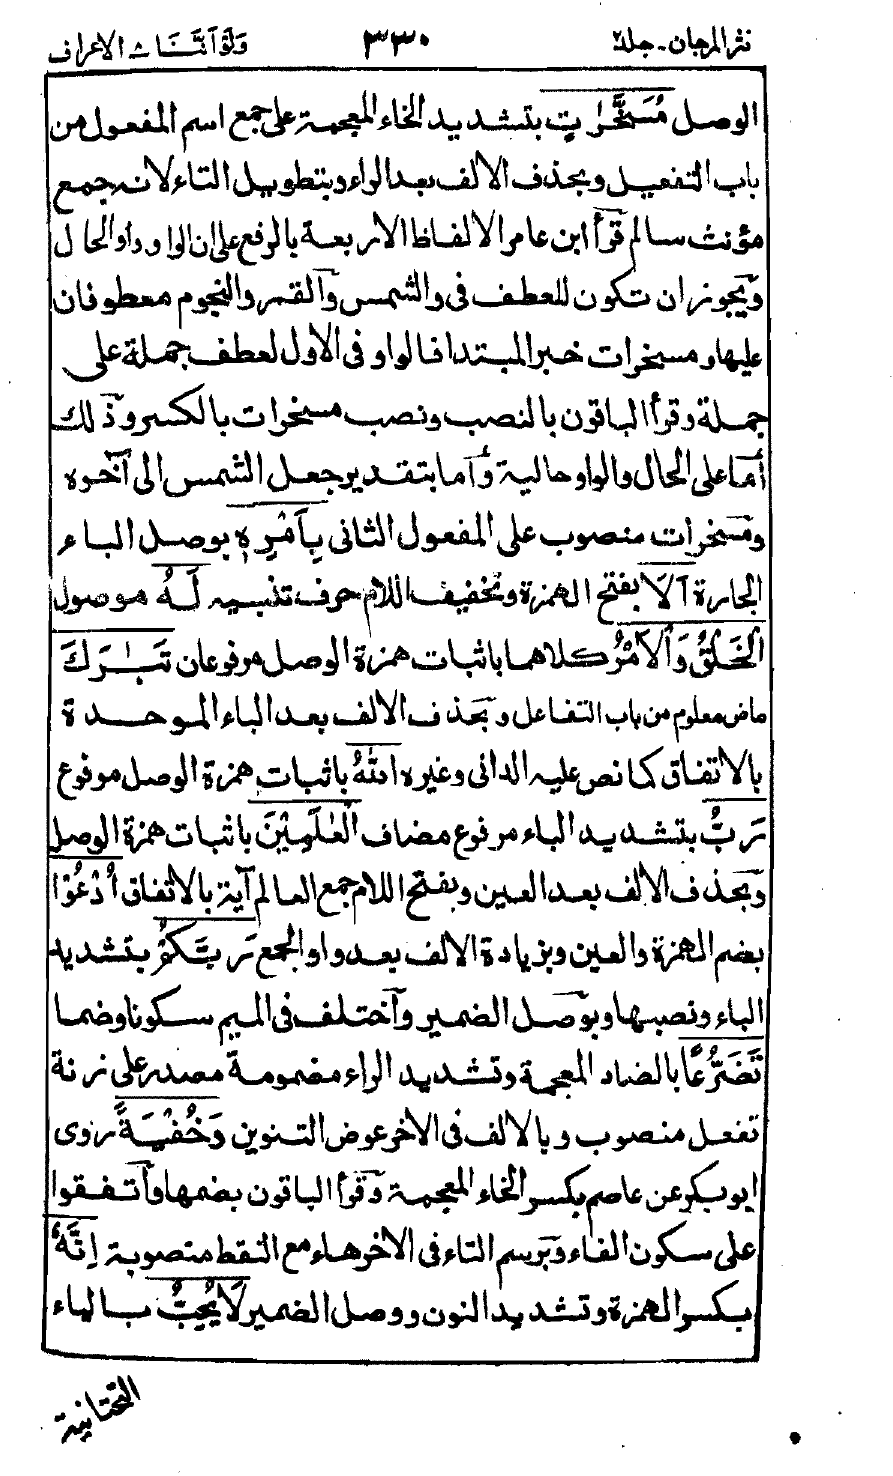 نثر المرجان ـ جلد ٢ ٣٣٠ ولو أننا ٨ الاعراف
الوصل مُسَخَّرٰتٍ بتشديد الخاء المعجمة على جمع اسم المفعول من
باب التفعيل وبحذف الالف بعد الراء وبتطويل التاء لانه جمع
مؤنث سالم قرأ ابن عامر الالفاظ الاربعة بالرفع على ان الواو واو الحال
ويجوز ان تكون للعطف فى والشمس والقمر والنجوم معطوفان
عليها ومسخرات خبر المبتدا فالواو فى الاول لعطف جملة على
جملة وقرأ الباقون بالنصب ونصب مسخرات بالكسر وذلك
أما على الحال والواو حالية وأما بتقدير جعل الشمس الى آخره
ومسخرات منصوب على المفعول الثانى بِاَمْرِهٖ بوصل الباء
الجارة اَلَا بفتح الهمزة وتخفيف اللام حرف تنبيه لَهُ موصول
الْخَلْقُ وَالْاَمْرُ كلاهما باثبات همزة الوصل مرفوعان تَبٰرَكَ
ماض معلوم من باب التفاعل وبحذف الالف بعد الباء الموحدة
بالاتفاق كما نص عليه الدانى وغيره اللّٰهُ باثبات همزة الوصل مرفوع
رَبُّ بتشديد الباء مرفوع مضاف الْعٰلَمِيْنَ باثبات همزة الوصل
وبحذف الالف بعد العين وبفتح اللام جمع العالم آية بالاتفاق اُدْعُوْا
بضم الهمزة والعين وبزيادة الالف بعد واو الجمع رَبَّكُمْ بتشديد
الباء ونصبها وبوصل الضمير واختلف فى الميم سكونا وضما
تَضَرُّعًا بالضاد المعجمة وتشديد الراء مضمومة مصدر على زنة
تفعل منصوب وبالالف فى الاخر عوض التنوين وَخُفْيَةً روى
ابو بكر عن عاصم بكسر الخاء المعجمة وقرأ الباقون بضمها واتفقوا
على سكون الفاء وبرسم التاء فى الاخر هاء مع النقط منصوبة اِنَّهُ
بكسر الهمزة وتشديد النون ووصل الضمير لَا يُحِبُّ بالياء
التحتانية